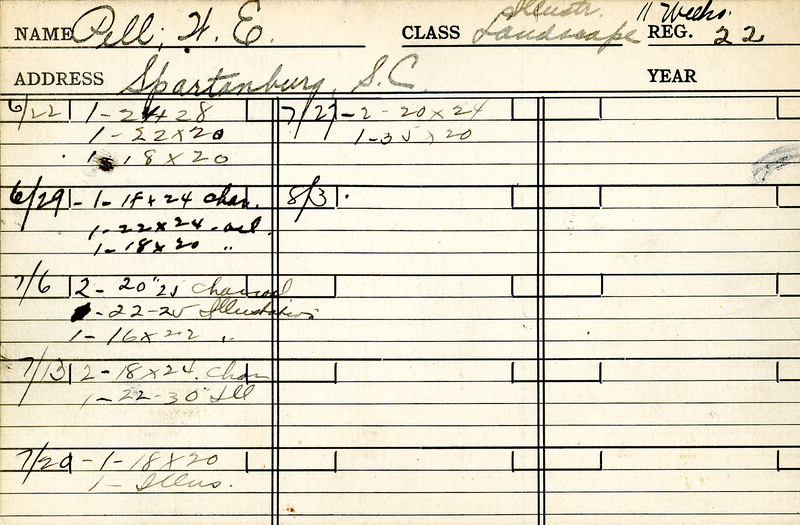 NAME Pell, W. E. CLASS Illustr. Landscape REG. 11 Weeks. 22
ADDRESS Spartanburg, S.C. YEAR
6/22 1-24x28
1-22x20
1-18x20
6/29 - 1-18x24 Char.
1-22x24 - oil.
1-18x20 "
7/6 2-20"25 Charcoal
-22-25 Illustration
1-16x22 "
7/13 2-18x24. Char
1-22-30" Ill
7/20 - 1-18x20
1- Illus.
7/27 -2-20x24
1-35x20
8/3 .